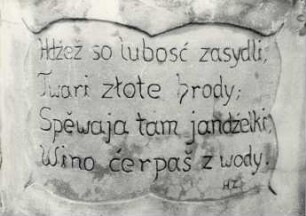 Hdźež so lubosć zasydli,
Twari złote hrody;
Spěwaja tam jandźelki,
Wino ćerpaš z wody.
HZ